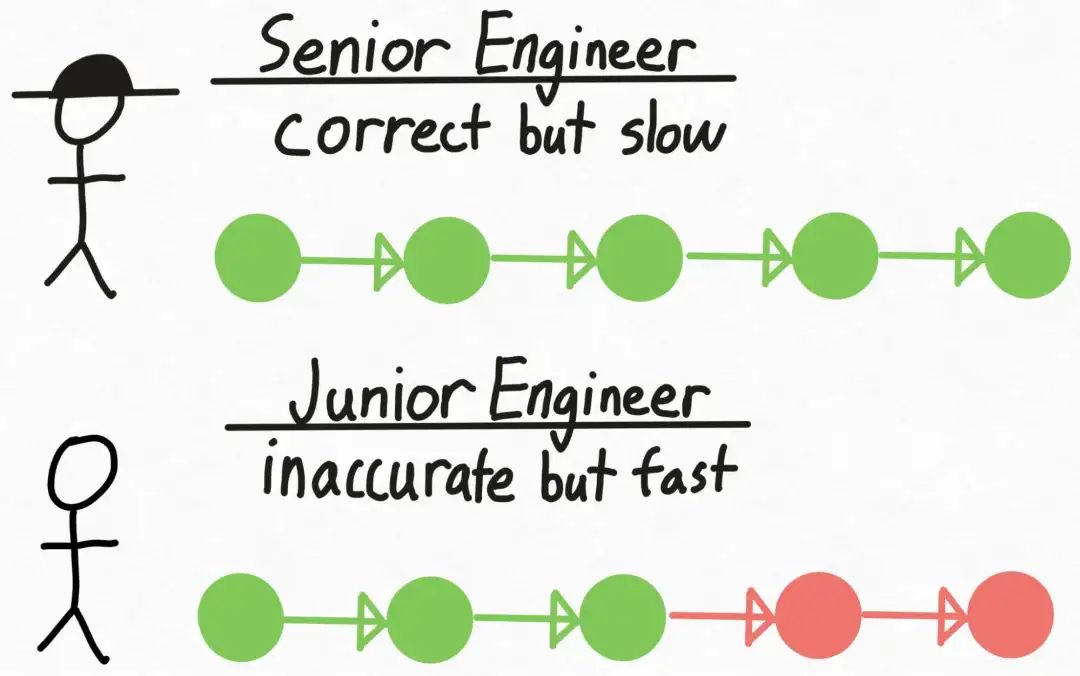 Senior Engineer
correct but slow
Junior Engineer
inaccurate but fast